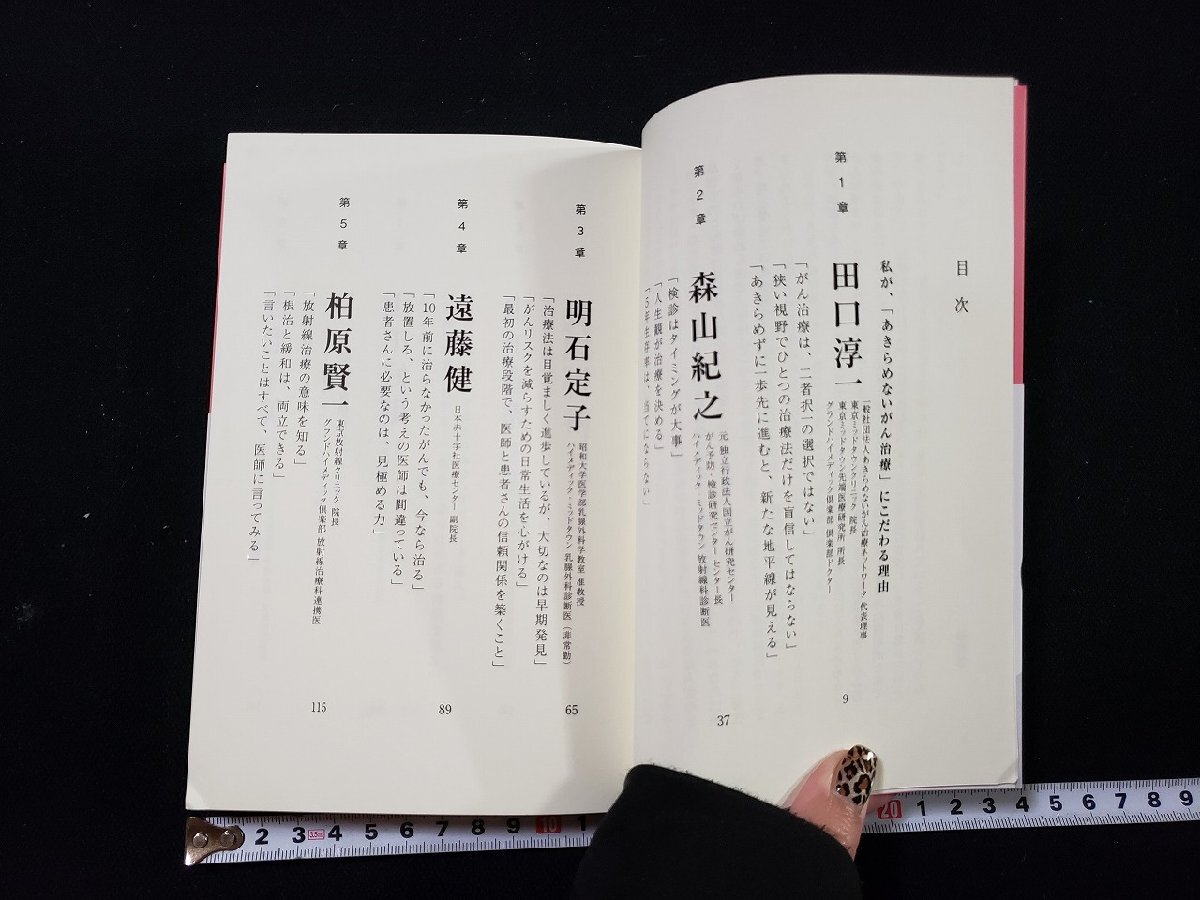 目次
私が、「あきらめないがん治療」にこだわる理由 9
第1章
田口淳一
一般社団法人あきらめないがん治療ネットワーク 代表理事
東京ミッドタウンクリニック 院長
東京ミッドタウン先端医療研究所 所長
グランドハイメディック倶楽部 倶楽部ドクター
「がん治療は、二者択一の選択ではない」
「狭い視野でひとつの治療法だけを盲信してはならない」
「あきらめずに一歩先に進むと、新たな地平線が見える」
第2章
森山紀之
元 独立行政法人国立がん研究センター
がん予防・検診研究センター センター長
ハイメディック・ミッドタウン 放射線科診断医
37
「検診はタイミングが大事」
「人生観が治療を決める」
「5年生存率は、当てにならない」
第3章
明石定子
昭和大学医学部乳腺外科学教室 准教授
ハイメディック・ミッドタウン 乳腺外科診断医(非常勤)
65
「治療法は目覚ましく進歩しているが、大切なのは早期発見」
「がんリスクを減らすための日常生活を心がける」
「最初の治療段階で、医師と患者さんの信頼関係を築くこと」
第4章
遠藤健
日本赤十字社医療センター 副院長
89
「10年前に治らなかったがんでも、今なら治る」
「放置しろ、という考えの医師は間違っている」
「患者さんに必要なのは、見極める力」
第5章
柏原賢一
東京放射線クリニック 院長
グランドハイメディック倶楽部 放射線治療科連携医
115
「放射線治療の意味を知る」
「根治と緩和は、両立できる」
「言いたいことはすべて、医師に言ってみる」
2 3 3.5m 4 5 6 7 8 9 10
20 1 2 3 4 5 6 7 8 9